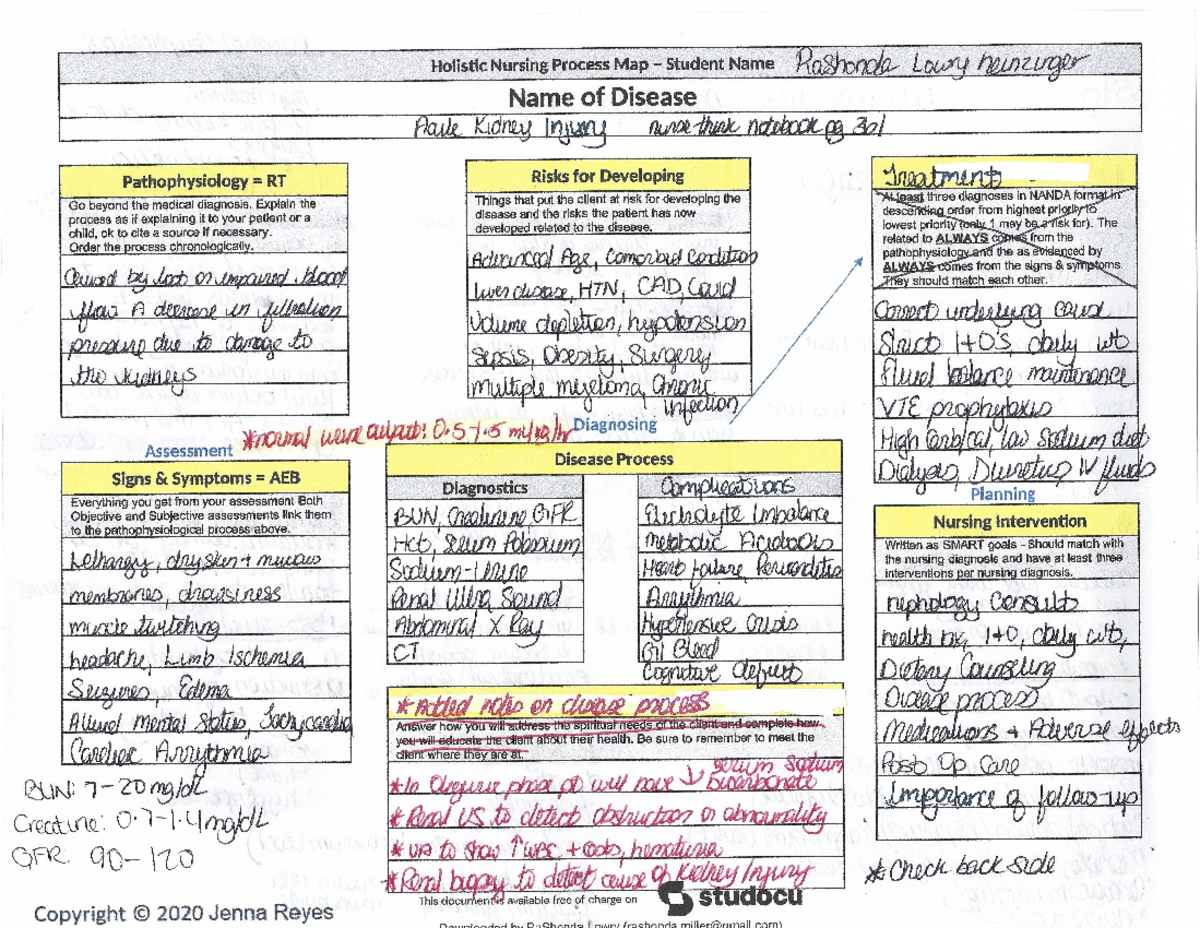 Holistic Nursing Process Map – Student Name RaShonda Lowry Heinzinger
Name of Disease
Acute Kidney Injury nurse think notebook pg 301
Pathophysiology = RT
Go beyond the medical diagnosis. Explain the
process as if explaining it to your patient or a
child, ok to cite a source if necessary.
Order the process chronologically.
Caused by lost or impaired blood
flow. A decrease in filtration
pressure due to damage to
the kidneys
Risks for Developing
Things that put the client at risk for developing the
disease and the risks the patient has now
developed related to the disease.
Advanced Age, Comorbid condition
liver disease, HTN, CAD, Covid
Volume depletion, hypotension
Sepsis, Obesity, Surgery
multiple myeloma, Chronic
infection
Treatment
At least three diagnoses in NANDA format in
descending order from highest priority to
lowest priority (only 1 may be a risk for). The
related to ALWAYS comes from the
pathophysiology and the as evidenced by
ALWAYS comes from the signs & symptoms.
They should match each other.
Correct underlying cause
Strict I+OS, daily wt
Fluid balance maintenance
VTE prophylaxis
High Carb/cal, low Sodium diet
Dialysis, Diuretics, IV fluids
*normal urine output: 0.5-1.5 ml/kg/hr
Diagnosing
Assessment
Signs & Symptoms = AEB
Everything you get from your assessment Both
Objective and Subjective assessments link them
to the pathophysiological process above.
Lethargy, dry skin + mucous
membranes, drowsiness
muscle twitching
headache, Limb Ischemia
Seizures, Edema
Altered Mental Status, Tachycardia
Cardiac Arrythmia
BUN: 7-20 mg/dL
Creatine: 0.7-1.4 mg/dL
GFR: 90-120
Disease Process
Diagnostics
BUN, Creatinine GFR
Hct, Serum Potassium
Sodium-Urine
Renal Ultra Sound
Abdominal X Ray
CT
Complications
Electrolyte Imbalance
Metabolic Acidosis
Heart failure, Pericarditis
Arrythmia
Hypertensive Crisis
GI Bleed
Cognitive deficits
*Added notes on disease process
Answer how you will address the spiritual needs of the client and complete how
you will educate the client about their health. Be sure to remember to meet the
client where they are at.
*In Oliguric phase pt will have ↓ serum Sodium
bicarbonate
*Renal US to detect obstruction or abnormality
*UA to show ↑ WBC + casts, hematuria
*Renal biopsy to detect cause of Kidney Injury
Planning
Nursing Intervention
Written as SMART goals - Should match with
the nursing diagnosis and have at least three
interventions per nursing diagnosis.
nephology Consults
health hx, I+O, daily wts,
Dietary Counseling
Disease process
Medications + Adverse effects
Post Op Care
Importance of follow-up
*Check back side
This document is available free of charge on
studocu
Copyright © 2020 Jenna Reyes
Downloaded by RaShonda Lowry (rashonda.miller@gmail.com)